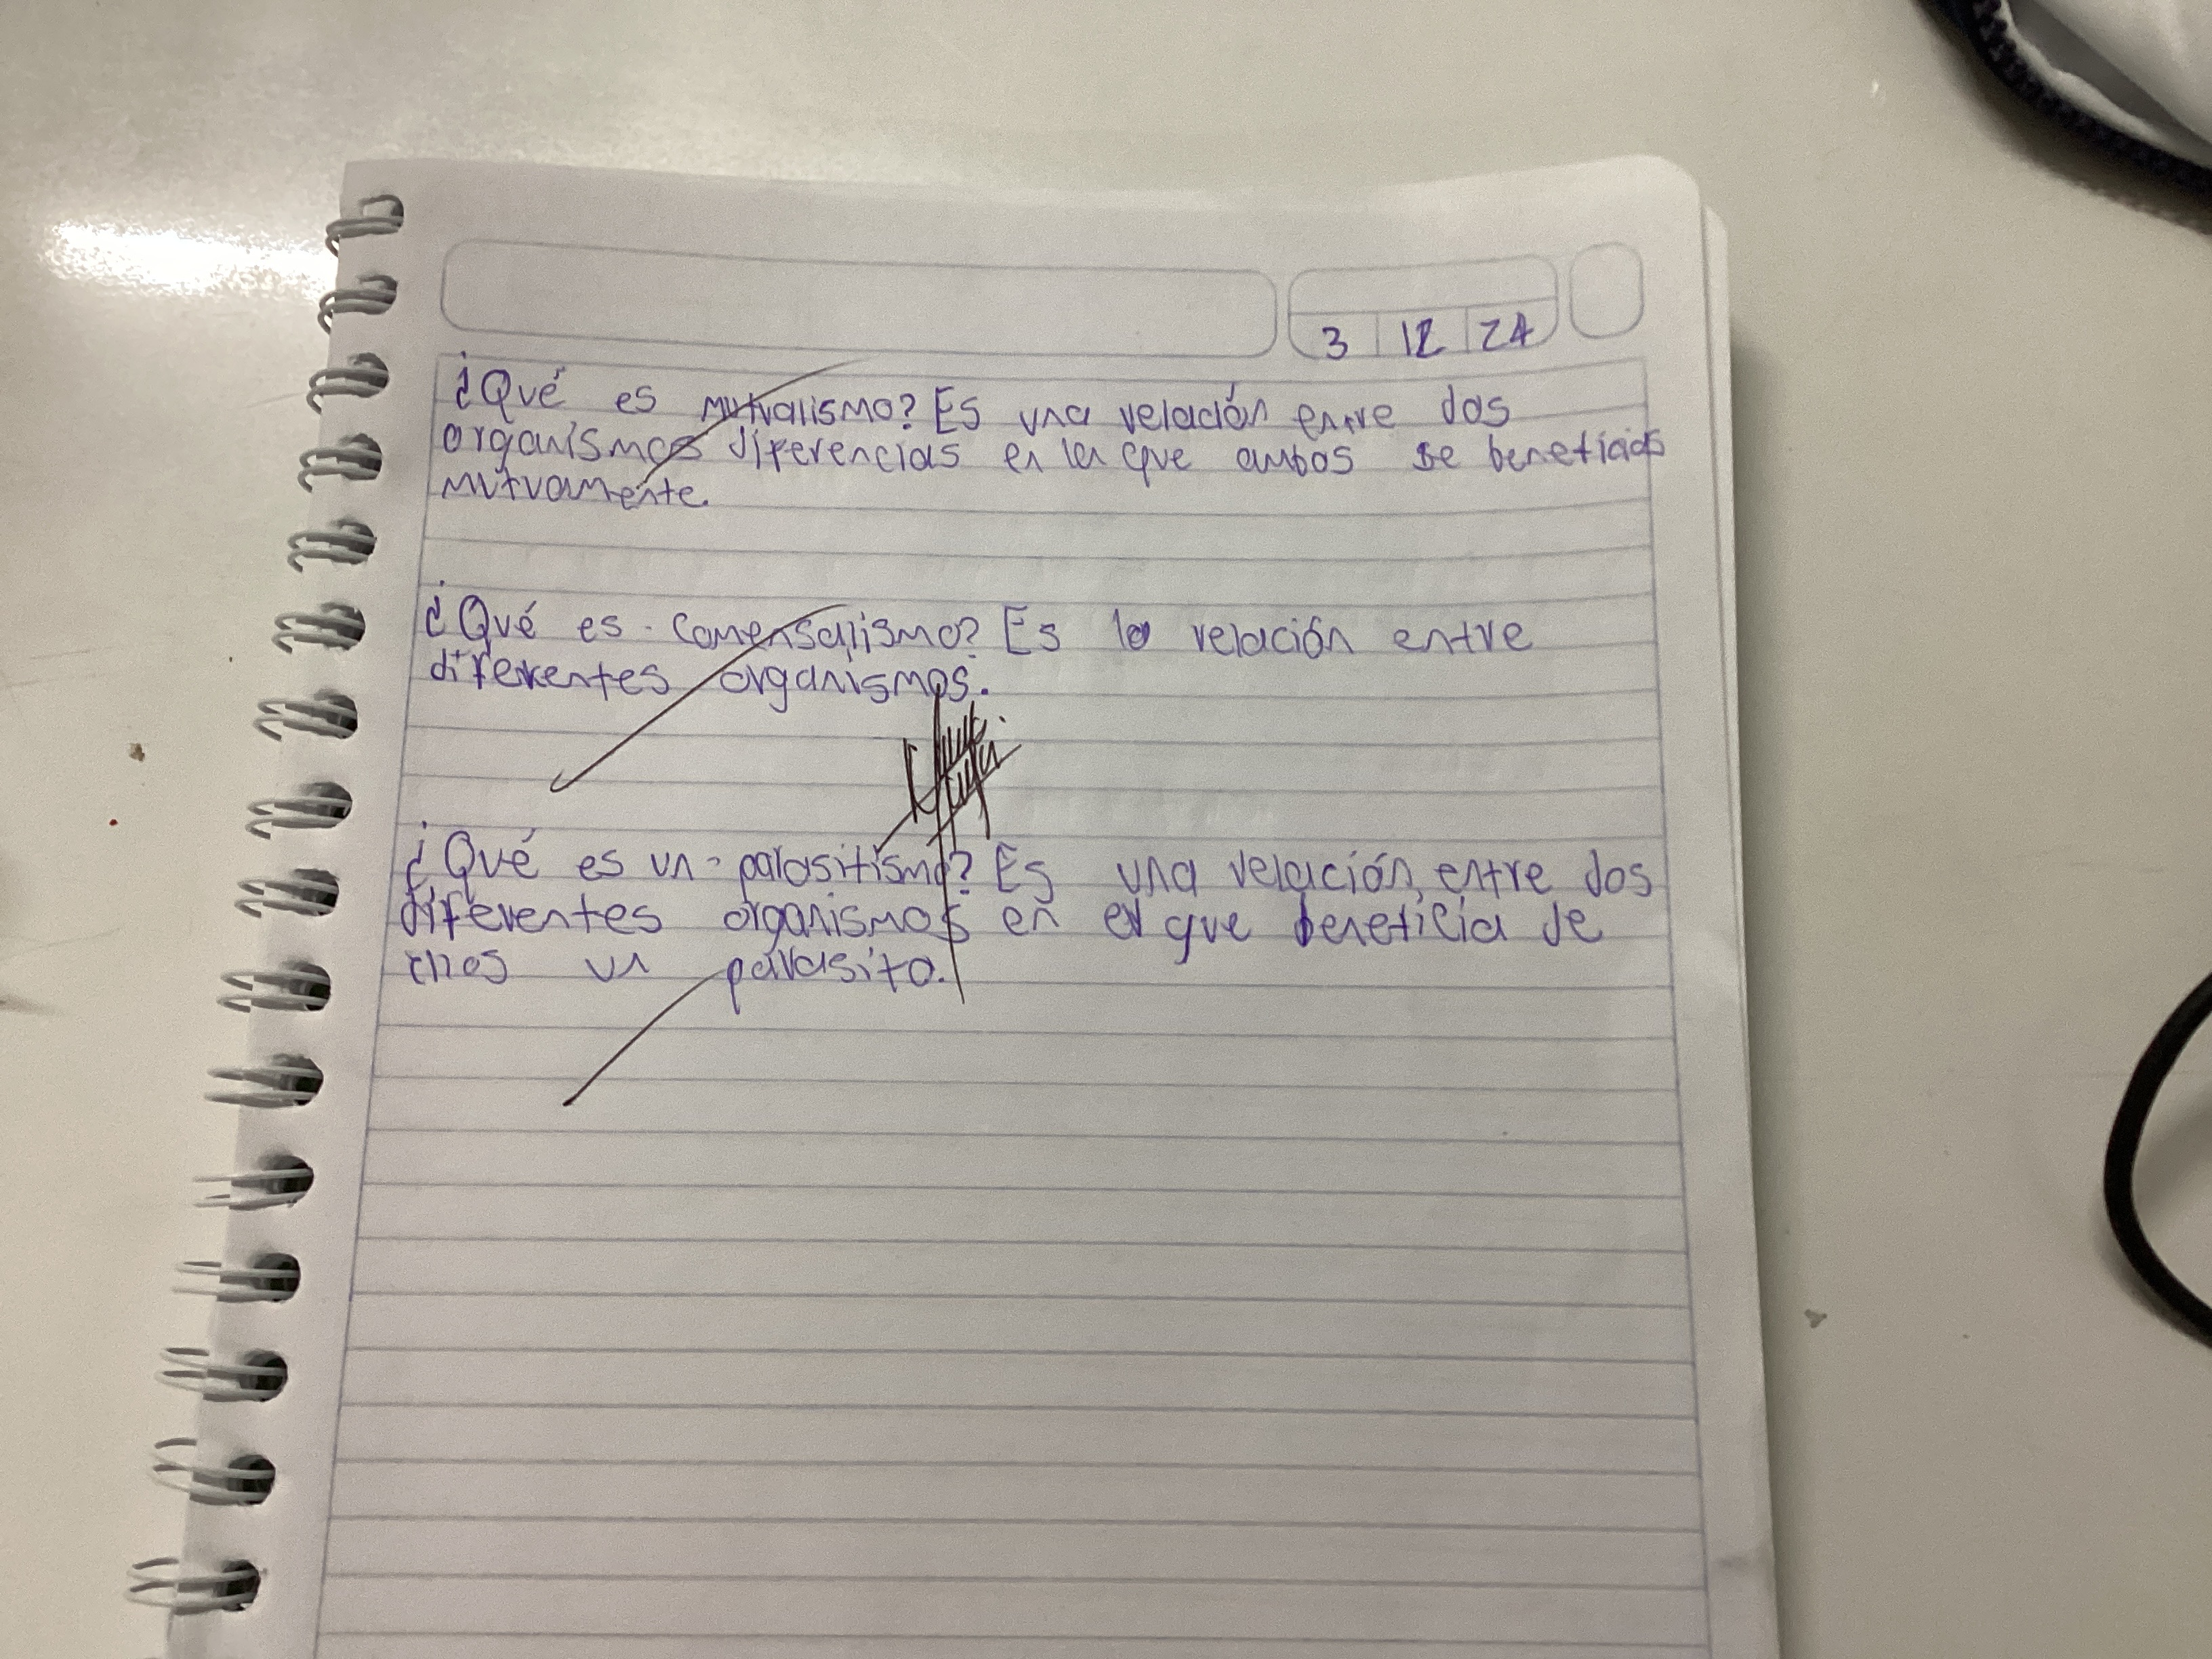 3 12 24
¿Qué es mutualismo? Es una relación entre dos
organismos diferencias en la que ambos se beneficias
mutuamente.
¿Qué es comensalismo? Es la relación entre
diferentes organismos.
¿Qué es un parasitismo? Es una relación entre dos
diferentes organismos en el que beneficia de
ellos un parasito.